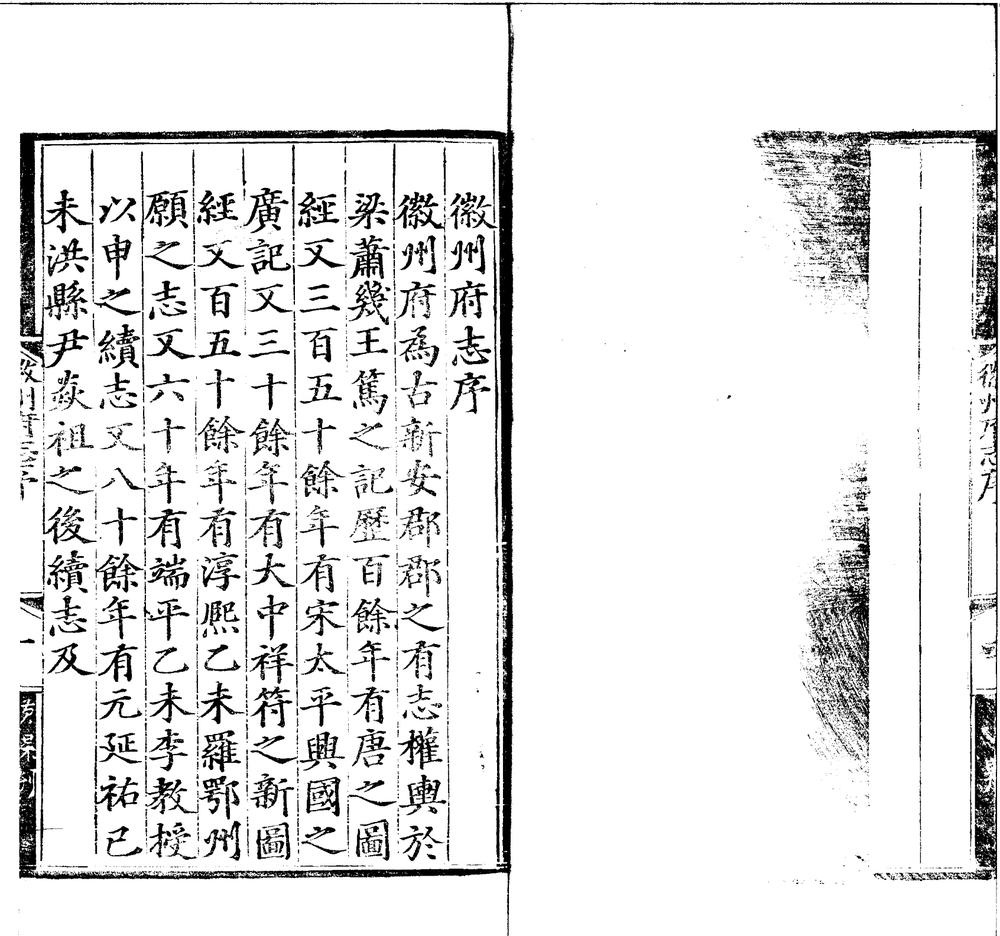 徽州府志序
徽州府為古新安郡郡之有志權輿於
梁蕭幾王篤之記歷百餘年有唐之圖
經又三百五十餘年有宋太平興國之
廣記又三十餘年有大中祥符之新圖
經又百五十餘年有淳熈乙未羅鄂州
願之志又六十年有端平乙未李教授
以申之續志又八十餘年有元延祐己
未洪縣尹焱祖之後續志及
徽州府志序
一
徽州府志序